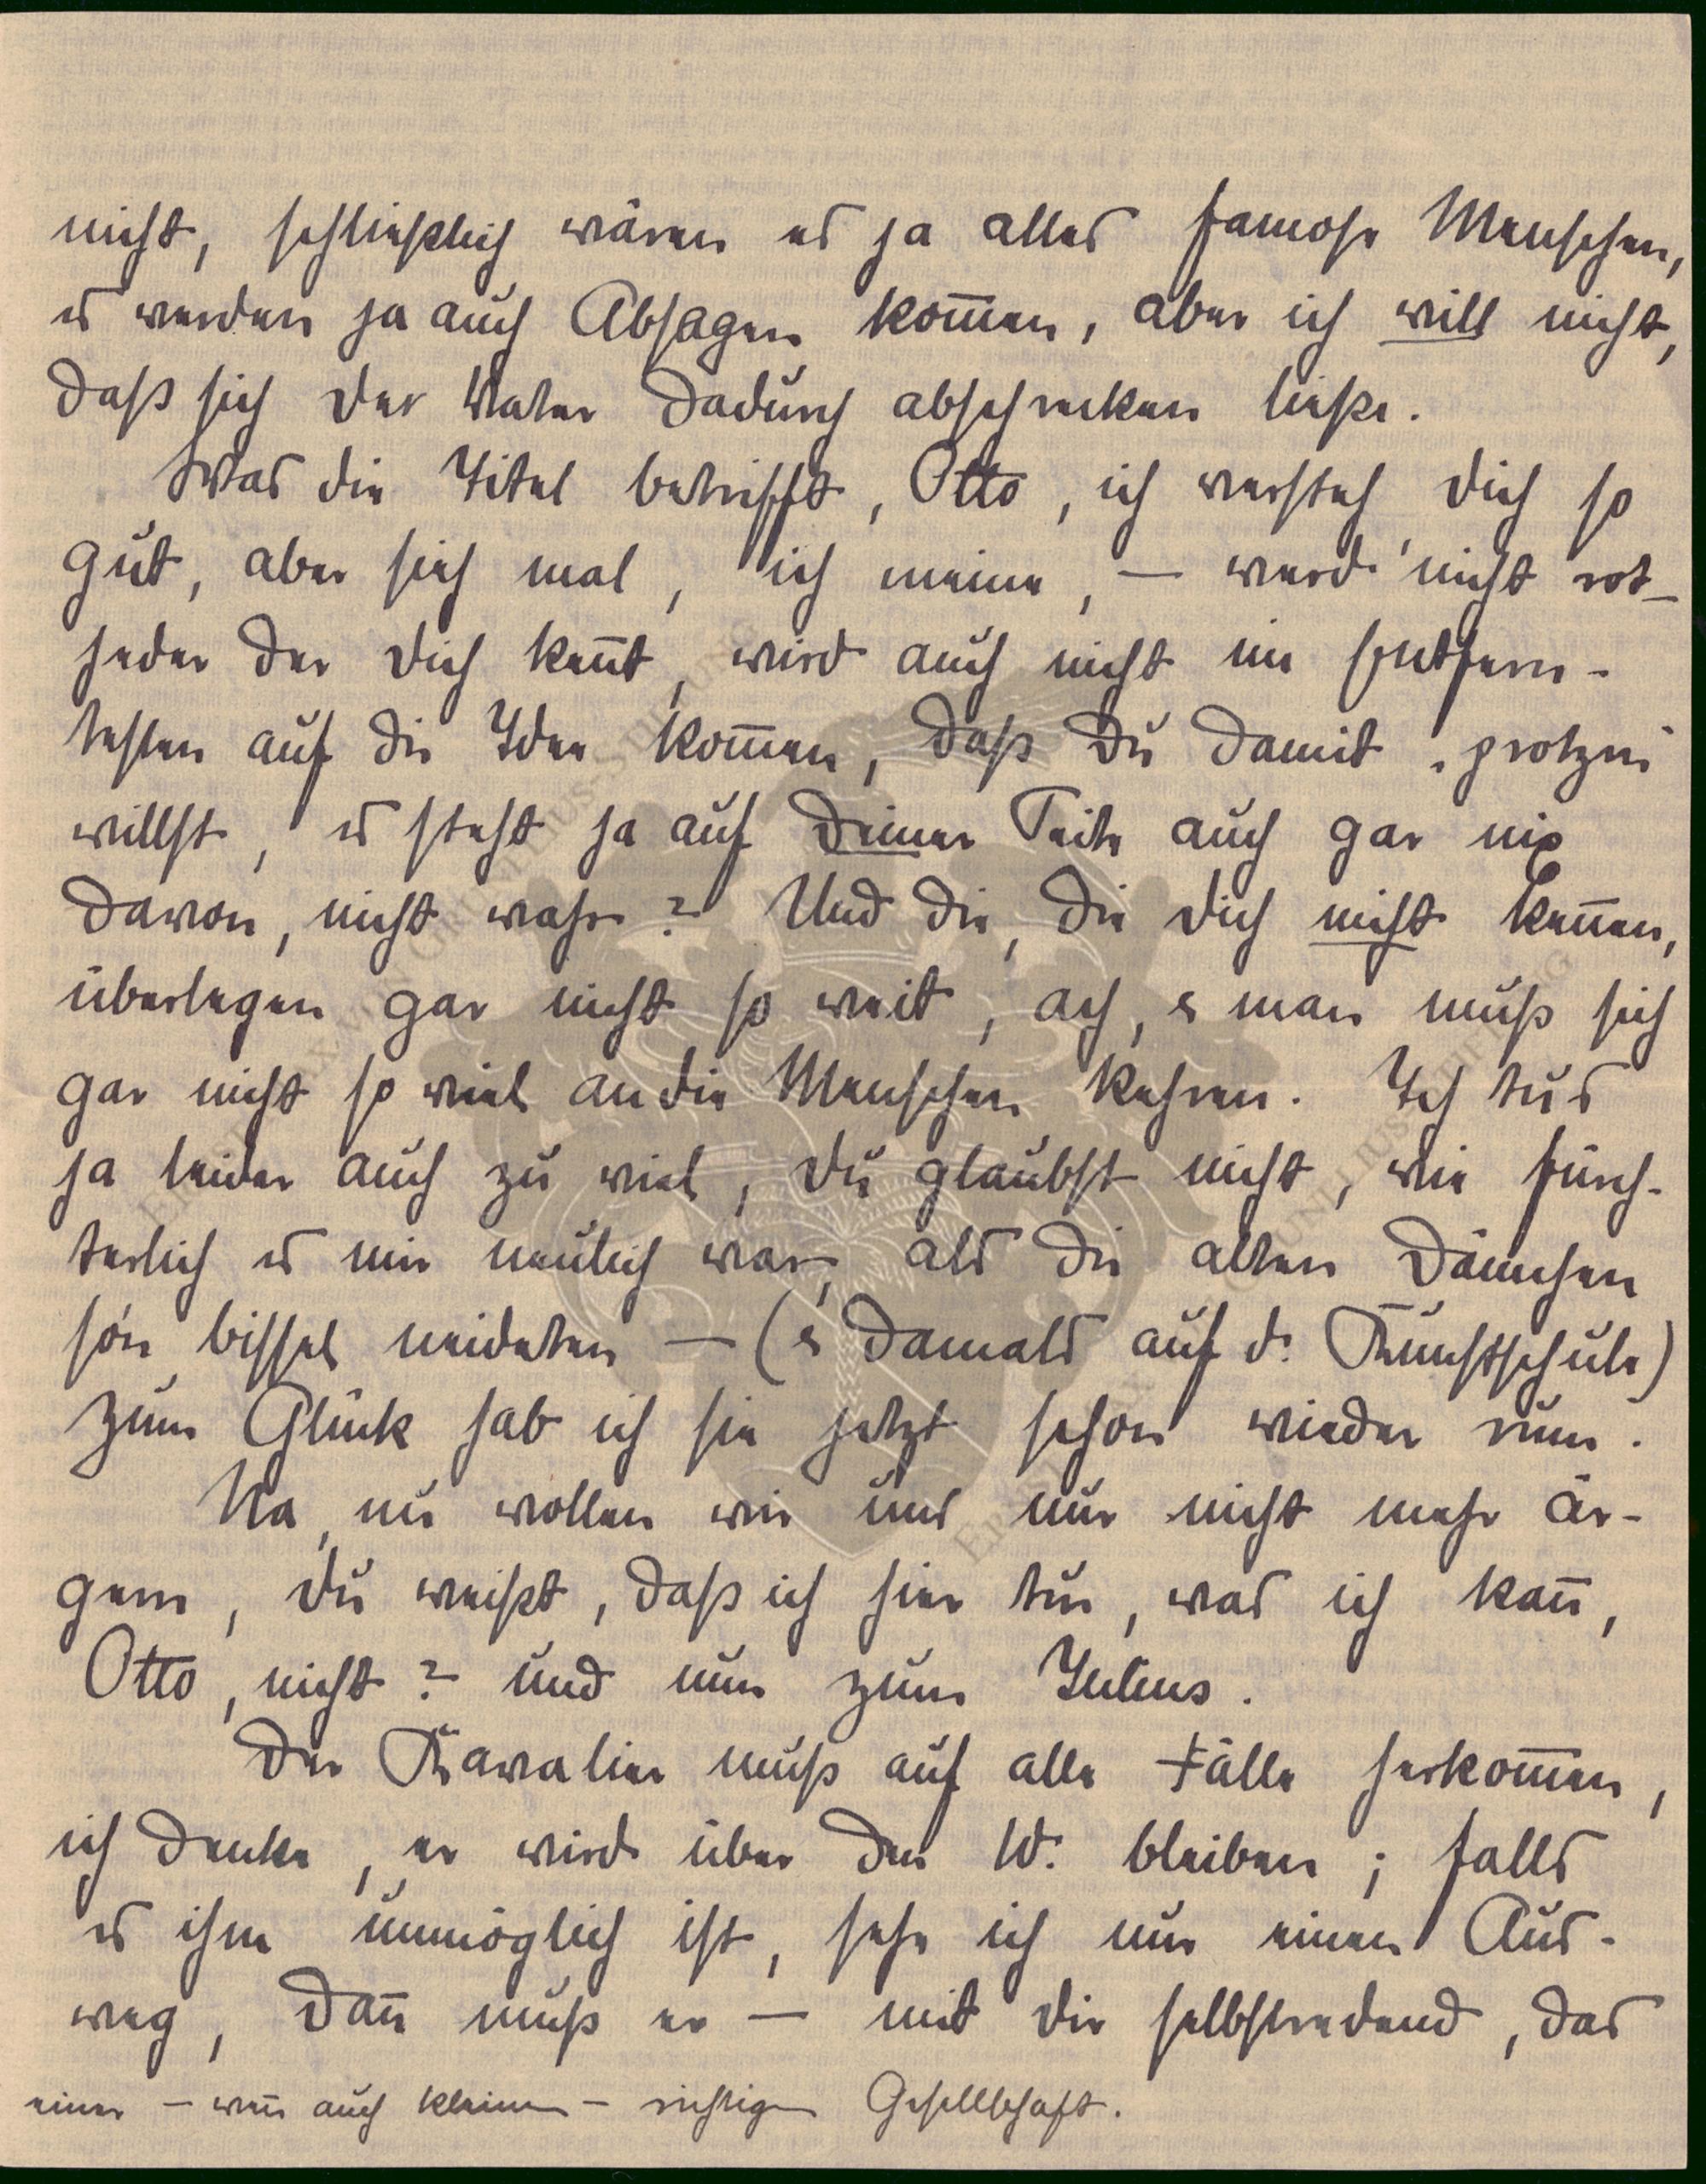 nicht, schließlich wären es ja alles famose Menschen,
es werden ja auch Absagen kom̄en, aber ich will nicht,
daß sich der Vater dadurch abschrecken ließe.
Was die Titel betrifft, Otto, ich versteh Dich so
gut, aber sieh mal, ich meine, — werd' nicht rot –
jeder der Dich ken̄t, wird auch nicht im Entfern-
testen auf die Idee kom̄en, daß Du damit „protzen“
willst, es steht ja auf Deiner Seite auch gar nix
davon, nicht wahr? Und die, die Dich nicht ken̄en,
überlegen gar nicht so weit, ach, & man muß sich
gar nicht so viel an die Menschen kehren. Ich tus
ja leider auch zu viel, Du glaubst nicht, wie fürch-
terlich es mir neulich war, als die alten Dämchen
so'n bissel neideten — (& damals auf d. Kunstschule)
zum Glück hab ich sie jetzt schon wieder rum.
Na, nu wollen wir uns nur nicht mehr är-
gern, Du weißt, daß ich hier tue, was ich kan̄,
Otto, nicht? und nun zum Julius.
Der Kavalier muß auf alle Fälle herkom̄en,
ich denke, er wird über den W. bleiben; falls
es ihm unmöglich ist, sehe ich nur einen Aus-
weg, dan̄ muß er — mit Dir selbstredend, das
einer – wen̄ auch kleinen – richtigen Gesellschaft.